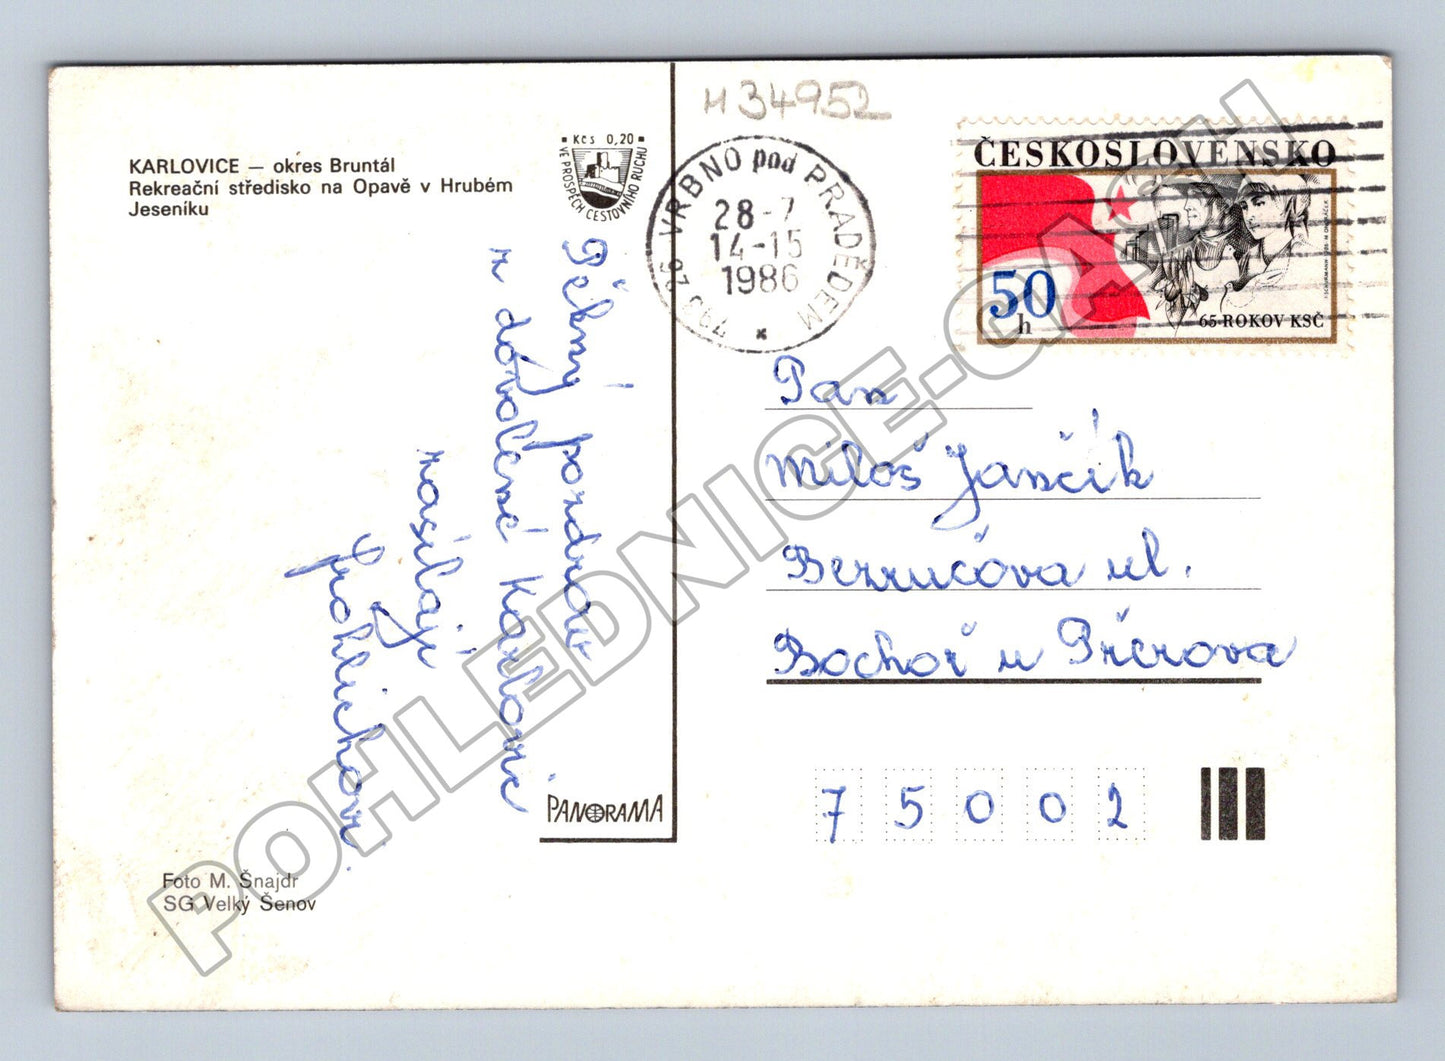 KARLOVICE — okres Bruntál
Rekreační středisko na Opavě v Hrubém
Jeseníku
Kčs 0,20
VE PROSPĚCH CESTOVNÍHO RUCHU
M 34952
793 26 VRBNO pod PRADĚDEM
28-7
14-15
1986
ČESKOSLOVENSKO
50
h
65. ROKOV KSČ
Pěkný pozdrav
z dovolené Karlovic
zasílají
Frohlichovi.
Pan
Miloš Jančík
Bezručova ul.
Bochoř u Přerova
75002
PANORAMA
Foto M. Šnajdr
SG Velký Šenov
POHLEDNICE-CASH